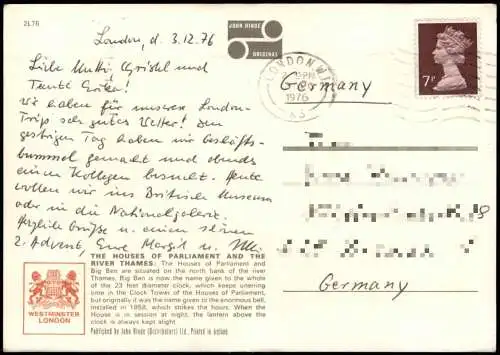 2L76
JOHN HINDE
ORIGINAL
LONDON W
PM
1976
7P
London, d. 3.12.76
Liebe Mutti, Christel und
Tante Grete!
Wir haben für unseren London-
Trip sehr gutes Wetter! Den
gestrigen Tag haben wir Geschäfts-
bummel gemacht und abends
einen Kollegen besucht. Heute
wollen wir ins Britische Museum
oder in die Nationalgalerie.
Herzliche Grüße u. einen schönen
2. Advent, Eure Margit u.
Germany
8
Germany
THE HOUSES OF PARLIAMENT AND THE
RIVER THAMES: The Houses of Parliament and
Big Ben are situated on the north bank of the river
Thames, Big Ben is now the name given to the whole
of the 23 feet diameter clock, which keeps unerring
time in the Clock Tower of the Houses of Parliament,
but originally it was the name given to the enormous bell,
installed in 1858, which strikes the hours. When the
House is in session at night, the lantern above the
clock is always kept alight
Published by John Hinde (Distributors) Ltd., Printed in Ireland.
WESTMINSTER
LONDON